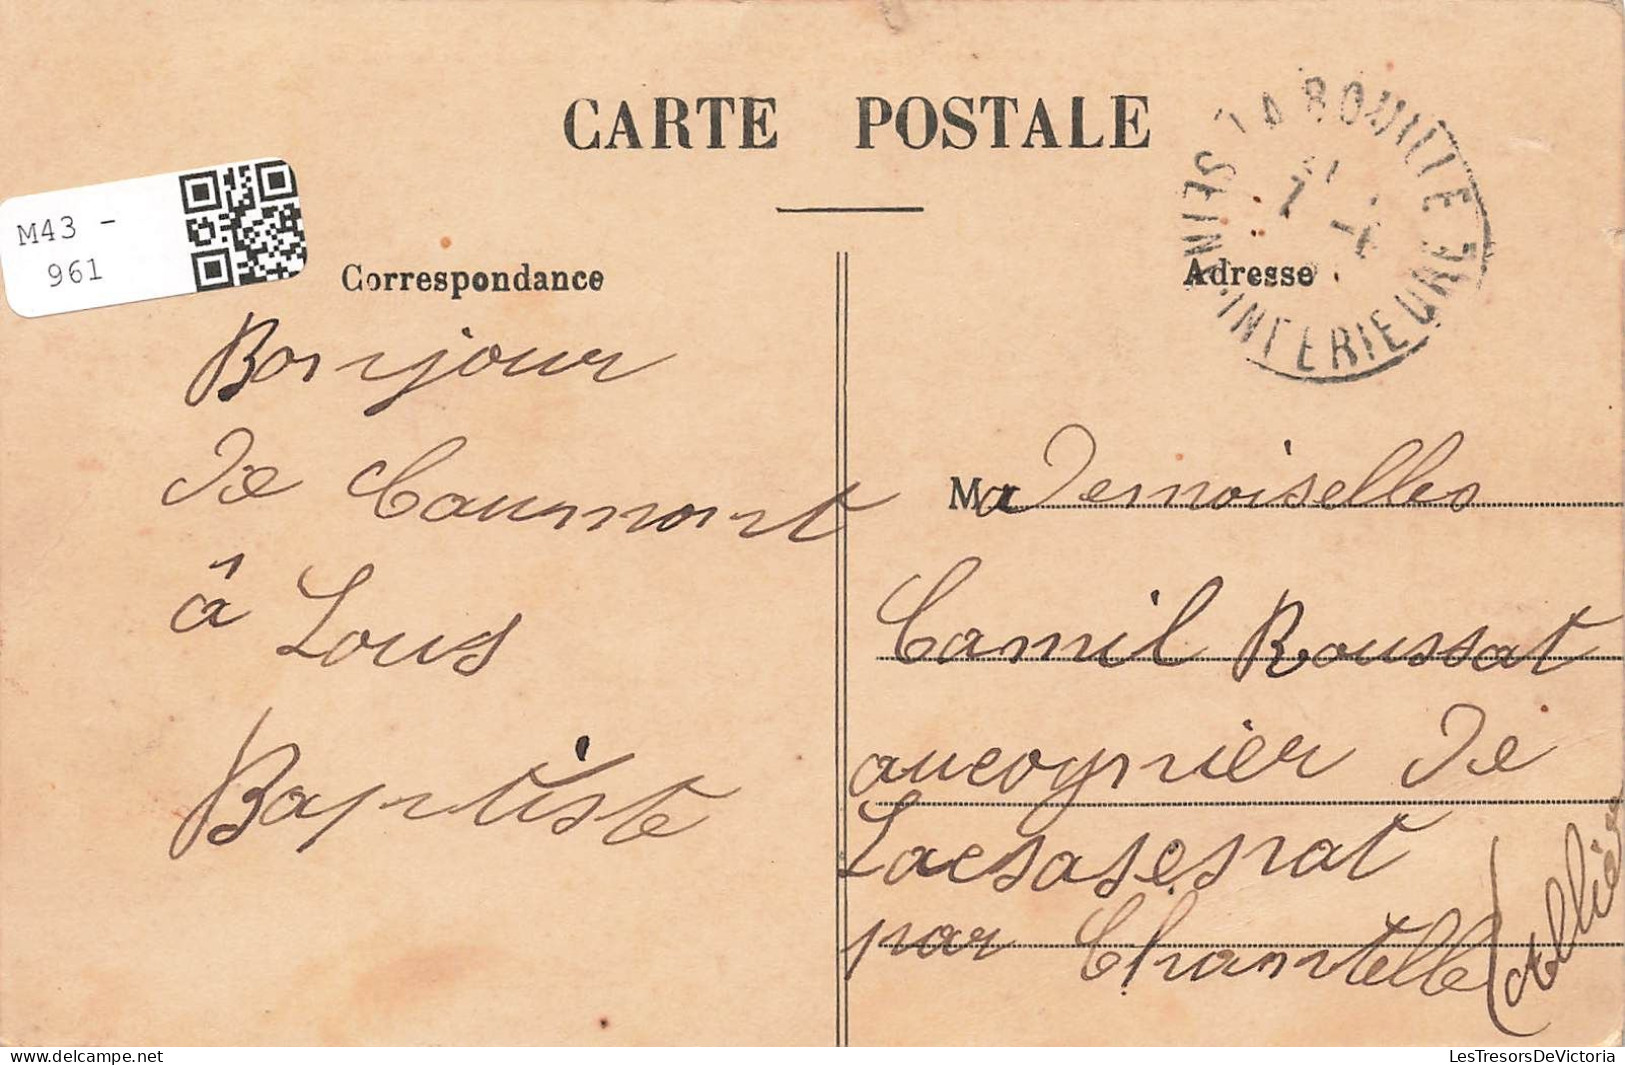 CARTE POSTALE
M43 -
961
Correspondance
Adresse
LA BOUILLE
SEINE INFERIEURE
Bonjour
de Caumont
à Tous
Baptiste
Mademoiselles
Camil Roussat
aucognier de
par Chantelle
(Allier
LesTresorsDeVictoria
delcampe.net